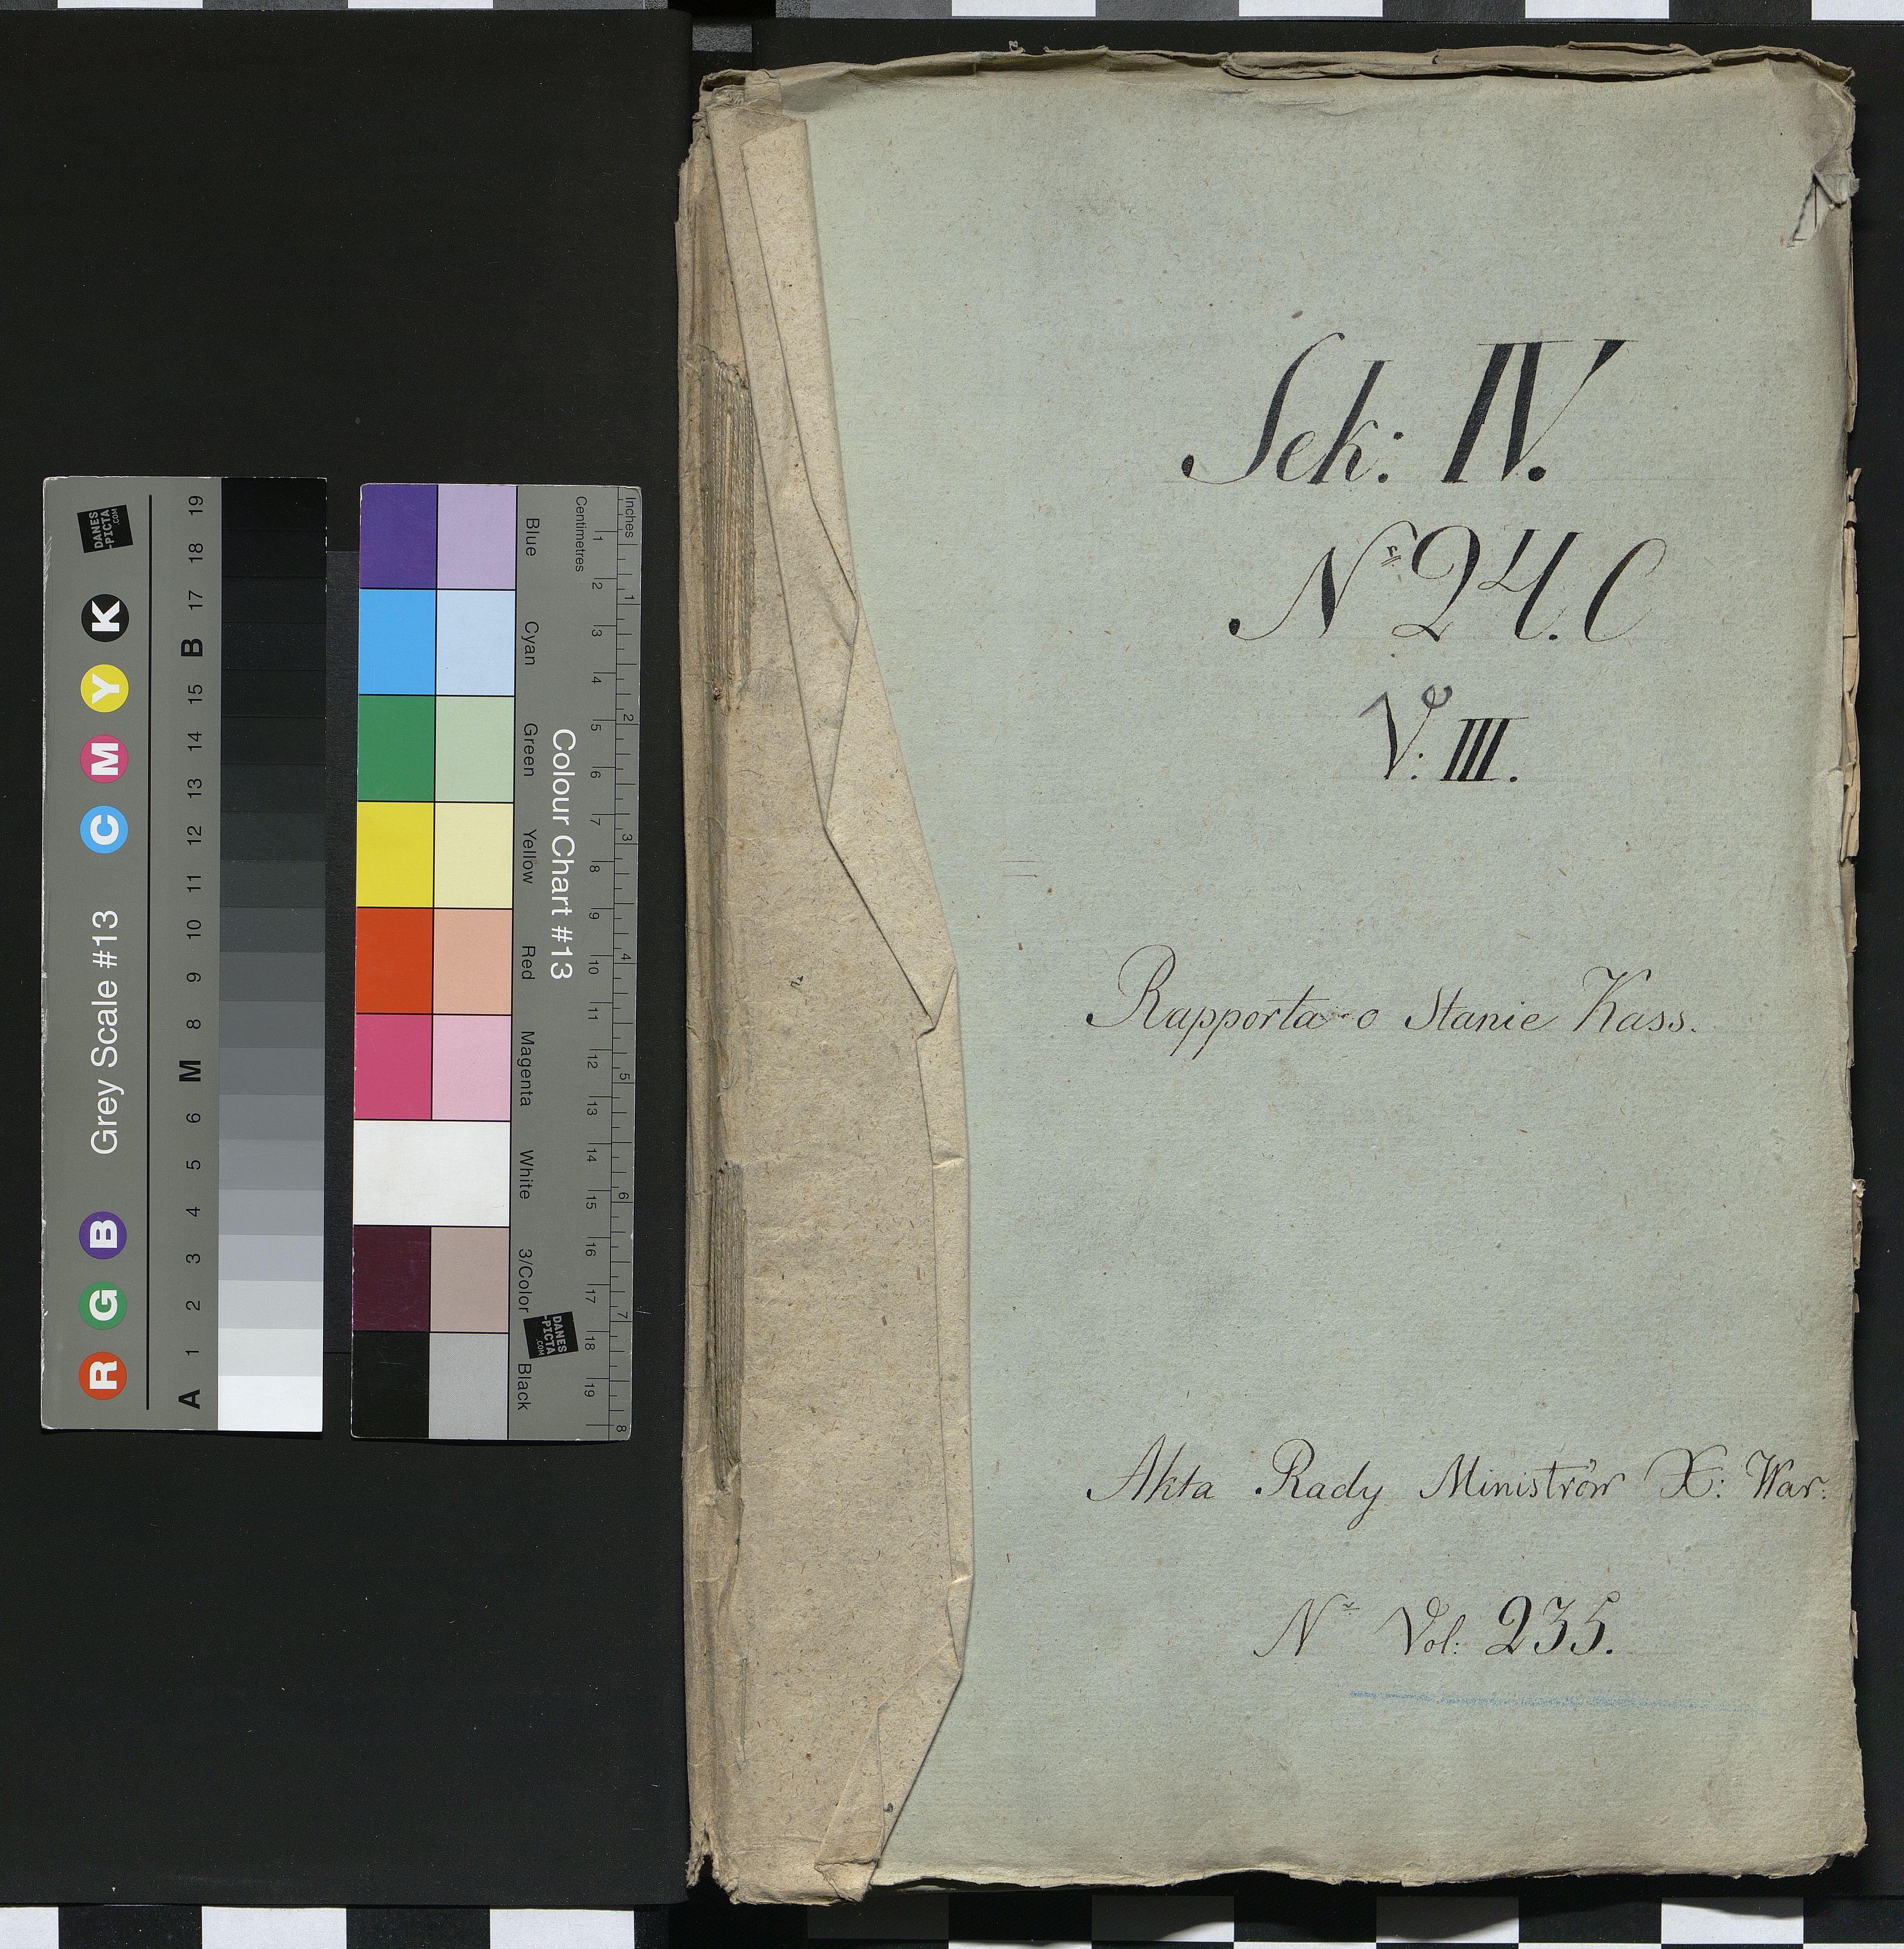 Sek: IV.
Nr 24. C
V: III.
Rapporta o Stanie Kass.
Akta Rady Ministrów X: War:
Nr Vol: 235.
DANES
-PICTA
.COM
R G B Grey Scale #13 C M Y K
A 1 2 3 4 5 6 M 8 9 10 11 12 13 14 15 B 17 18 19
Colour Chart #13
Blue Cyan Green Yellow Red Magenta White 3/Color Black
Centimetres 1 2 3 4 5 6 7 8 9 10 11 12 13 14 15 16 17 18 19
Inches 1 2 3 4 5 6 7 8
DANES
-PICTA
.COM